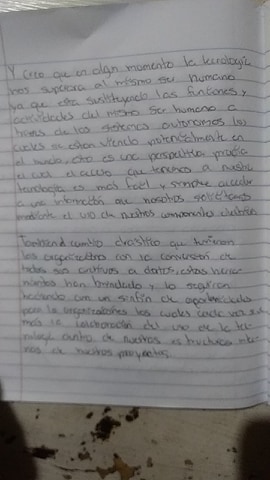 Y creo que en algn momento la tecnologia
nos superara al mismo ser humano
ya que esta sustituyendo las funciones y
actividades del mismo ser humano a
traves de los sistemas autonomos los
cuales se estan viendo potencialmente en
el mundo, esto es una perspectiva
el cual el acceso que tenemos a nuestra
tecnologia es mas facil y siempre acceder
a una informacion que nosotros solicitamos
mediante el uso de nuestros componentes
Tambien cambio drastico que tuvieron
las organizaciones con la conversion de
todos sus archivos a datos, estas herra
mientas han brindado y lo seguiran
haciendo con un sinfin de oportunidades
para la organizaciones los cuales cada vez
mas la del uso de la tec
nologia dentro de nuestras estructuras inter
nas de nuestros proyectos.